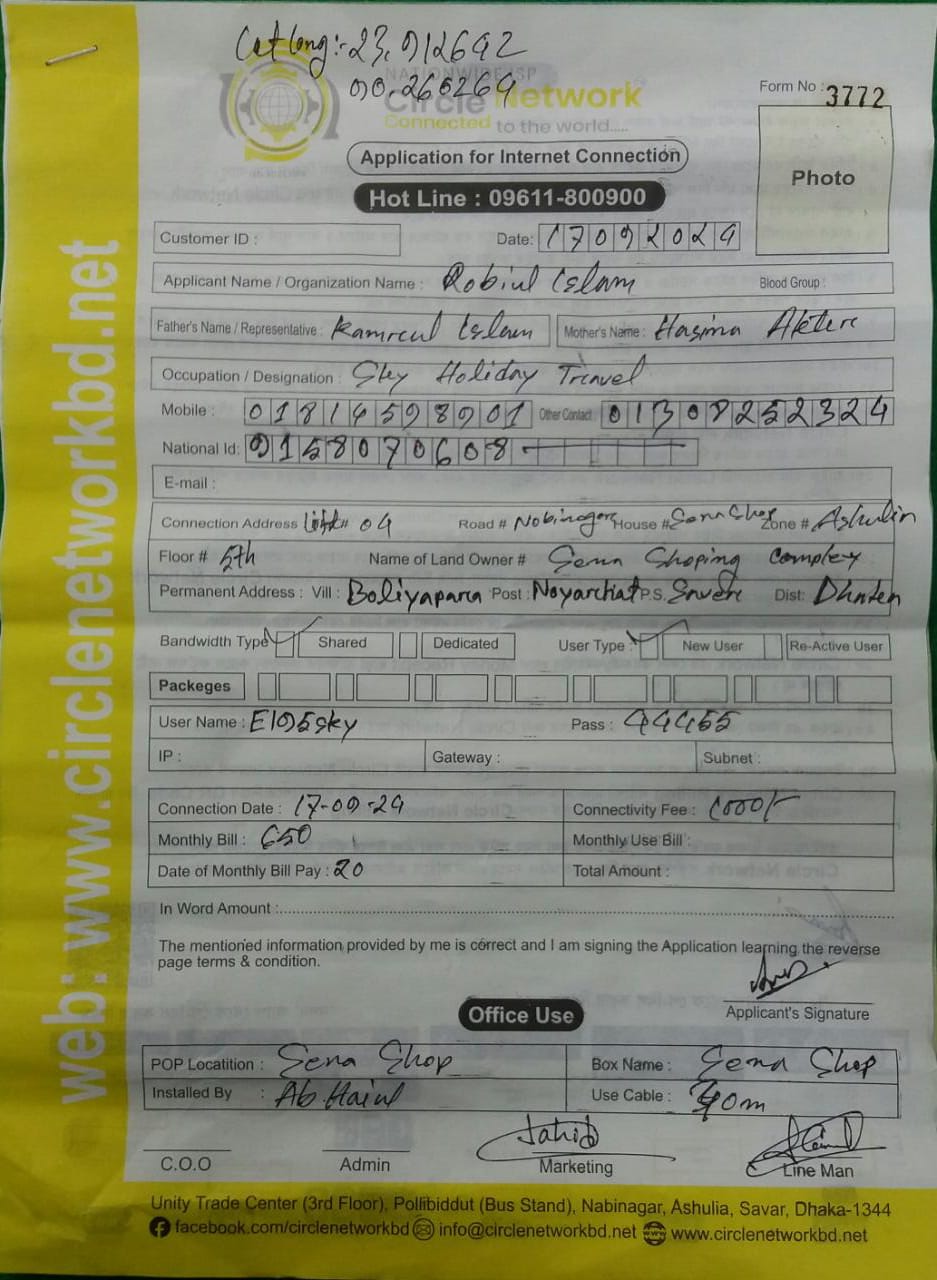 Cat long:- 23.912692
90.260269
NATIONWIDE ISP
Circle Network
Connected to the world.....
Form No : 3772
Photo
Application for Internet Connection
Hot Line : 09611-800900
Customer ID :
Date: 17092024
Applicant Name / Organization Name : Robiul Islam Blood Group :
Father's Name / Representative : Kamrul Islam Mother's Name : Hasina Akter
Occupation / Designation : Sky Holiday Travel
Mobile : 01814598901 Other Contact 01308252324
National Id: 9158070608
E-mail :
Connection Address Lift # 04 Road # Nobinagar House # Sena Shop Zone # Ashulia
Floor # 5th Name of Land Owner # Sena Shoping Complex
Permanent Address : Vill : Boliyapara Post : Noyarhat P.S. Savar Dist: Dhaka
Bandwidth Type Shared Dedicated User Type : New User Re-Active User
Packeges
User Name : E195sky Pass : 44455
IP : Gateway : Subnet :
Connection Date : 17-09-24 Connectivity Fee : 1000/-
Monthly Bill : 650 Monthly Use Bill :
Date of Monthly Bill Pay : 20 Total Amount :
In Word Amount :
The mentioned information provided by me is correct and I am signing the Application learning the reverse
page terms & condition.
Applicant's Signature
Office Use
POP Locatition : Sena Shop Box Name : Sena Shop
Installed By : Ab Haiul Use Cable : 40m
Jahid
C.O.O Admin Marketing Line Man
Unity Trade Center (3rd Floor), Pollibiddut (Bus Stand), Nabinagar, Ashulia, Savar, Dhaka-1344
facebook.com/circlenetworkbd info@circlenetworkbd.net www.circlenetworkbd.net
web: www.circlenetworkbd.net